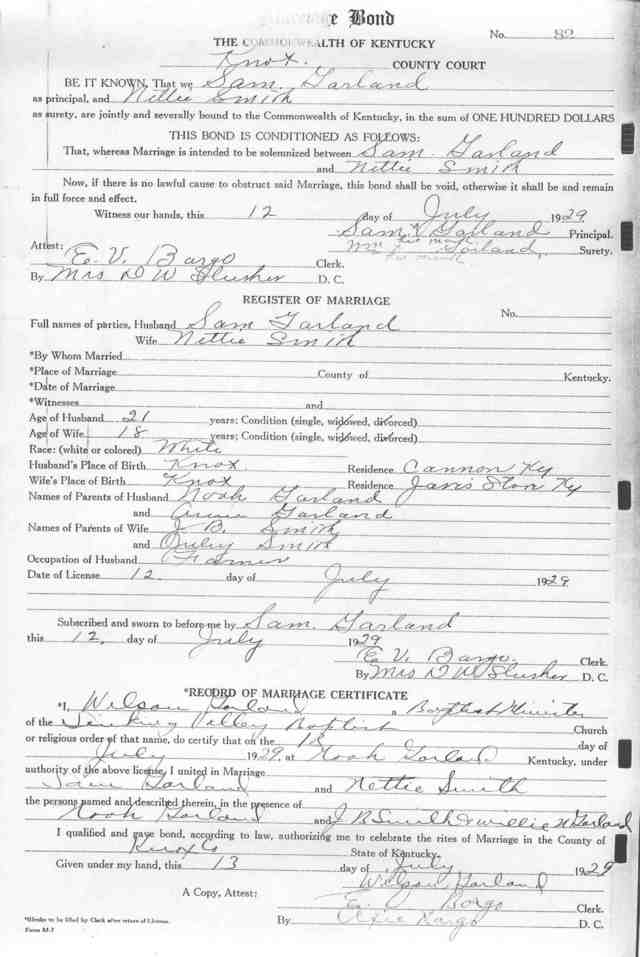 Marriage Bond
No. 82
THE COMMONWEALTH OF KENTUCKY
Knox. COUNTY COURT
BE IT KNOWN, That we Sam. Garland
as principal, and Nittie Smith
as surety, are jointly and severally bound to the Commonwealth of Kentucky, in the sum of ONE HUNDRED DOLLARS
THIS BOND IS CONDITIONED AS FOLLOWS:
That, whereas Marriage is intended to be solemnized between Sam. Garland
and Nittie Smith
Now, if there is no lawful cause to obstruct said Marriage, this bond shall be void, otherwise it shall be and remain
in full force and effect.
Witness our hands, this 12 day of July 1929.
Sam X Garland Principal.
his mark
Attest: Wm Garland, Surety.
his mark
E. V. Bargo Clerk.
By Mrs D W Slusher D. C.
REGISTER OF MARRIAGE
No.
Full names of parties, Husband Sam Garland
Wife Nittie Smith
*By Whom Married
*Place of Marriage County of Kentucky.
*Date of Marriage
*Witnesses and
Age of Husband 21 years; Condition (single, widowed, divorced)
Age of Wife 18 years; Condition (single, widowed, divorced)
Race: (white or colored) White
Husband's Place of Birth Knox. Residence Cannon Ky
Wife's Place of Birth Knox Residence Ky
Names of Parents of Husband Noah Garland
and Garland
Names of Parents of Wife J. B. Smith
and Smith
Occupation of Husband Farmer
Date of License 12. day of July 1929
Subscribed and sworn to before me by Sam. Garland
this 12. day of July 1929
E. V. Bargo. Clerk.
By Mrs D W Slusher D. C.
*RECORD OF MARRIAGE CERTIFICATE
*I, Wilson Garland a Baptist Minister
of the Valley Baptist Church
or religious order of that name, do certify that on the 13 day of
July 1929, at Noah Garland Kentucky, under
authority of the above license, I united in Marriage
Sam Garland and Nettie Smith
the persons named and described therein, in the presence of
Noah Garland and J B Smith & Willie N Garland
I qualified and gave bond, according to law, authorizing me to celebrate the rites of Marriage in the County of
Knox Co State of Kentucky.
Given under my hand, this 13 day of July 1929
Wilson Garland
A Copy, Attest: E. Bargo Clerk.
By Bargo
*Blanks to be filled by Clerk after return of License.
Form M-7